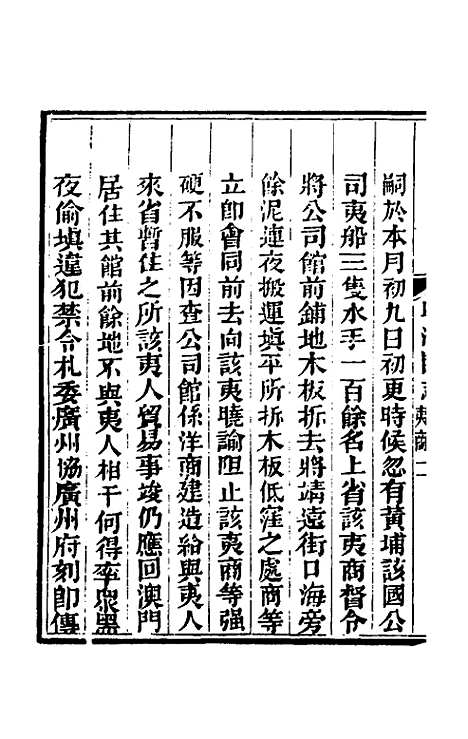 嗣於本月初九日初更時候忽有黃埔該國公
司夷船三隻水手一百餘名上省該夷商督令
將公司館前鋪地木板拆去將靖遠街口海旁
餘泥連夜搬運塡平所拆木板低窪之處商等
立卽會同前去向該夷曉諭阻止該夷商等强
硬不服等因查公司館係洋商建造給與夷人
來省暫住之所該夷人貿易事竣仍應回澳門
居住其館前餘地不與夷人相干何得率衆黑
夜偷塡違犯禁令札委廣州協廣州府刻卽傳